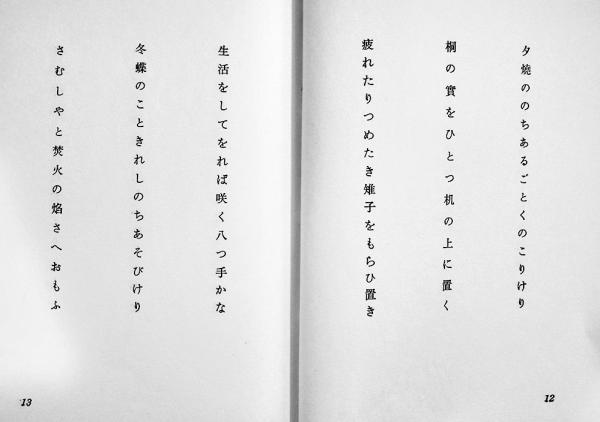 夕燒ののちあるごとくのこりけり
桐の實をひとつ机の上に置く
疲れたりつめたき雉子をもらひ置き
12
生活をしてをれば咲く八つ手かな
冬蝶のこときれしのちあそびけり
さむしやと焚火の焰さへおもふ
13